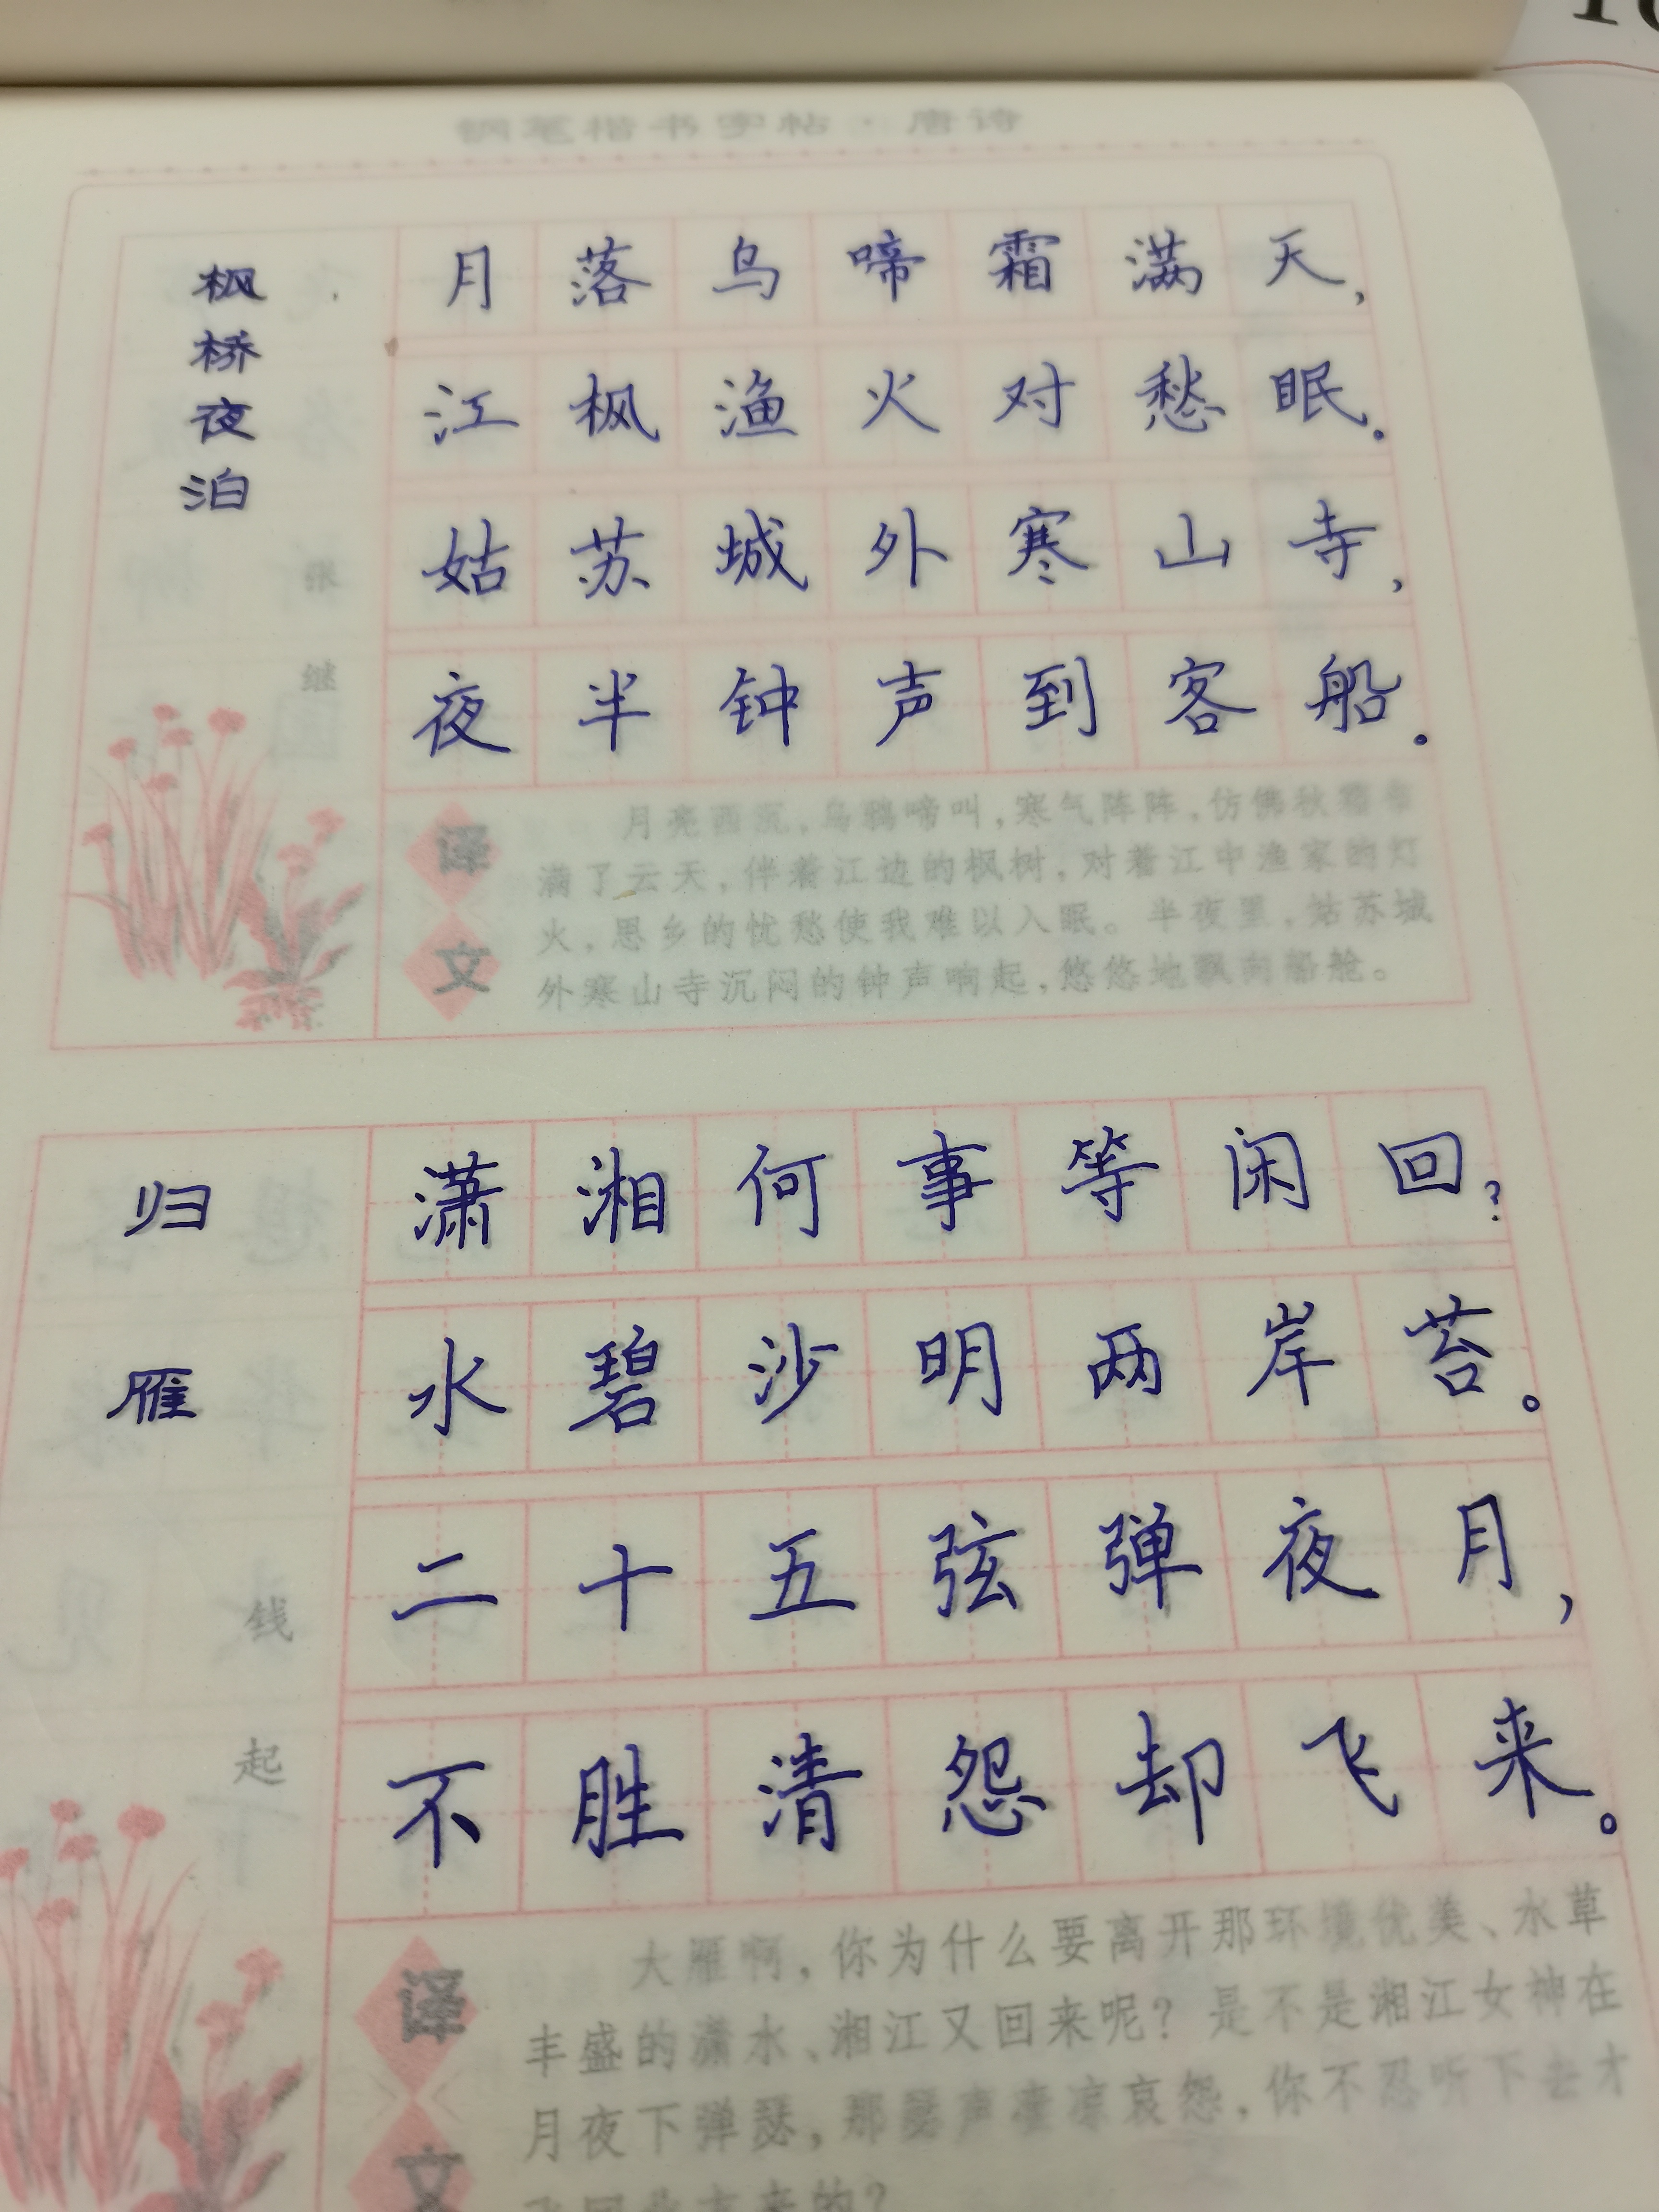 钢笔楷书字帖·唐诗
枫桥夜泊
张继
月落乌啼霜满天,
江枫渔火对愁眠。
姑苏城外寒山寺,
夜半钟声到客船。
译文
月亮西沉,乌鸦啼叫,寒气阵阵,仿佛秋霜布
满了云天,伴着江边的枫树,对着江中渔家的灯
火,思乡的忧愁使我难以入眠。半夜里,姑苏城
外寒山寺沉闷的钟声响起,悠悠地飘向船舱。
归雁
钱起
潇湘何事等闲回?
水碧沙明两岸苔。
二十五弦弹夜月,
不胜清怨却飞来。
译文
大雁啊,你为什么要离开那环境优美、水草
丰盛的潇水、湘江又回来呢?是不是湘江女神在
月夜下弹瑟,那瑟声凄凉哀怨,你不忍听下去才